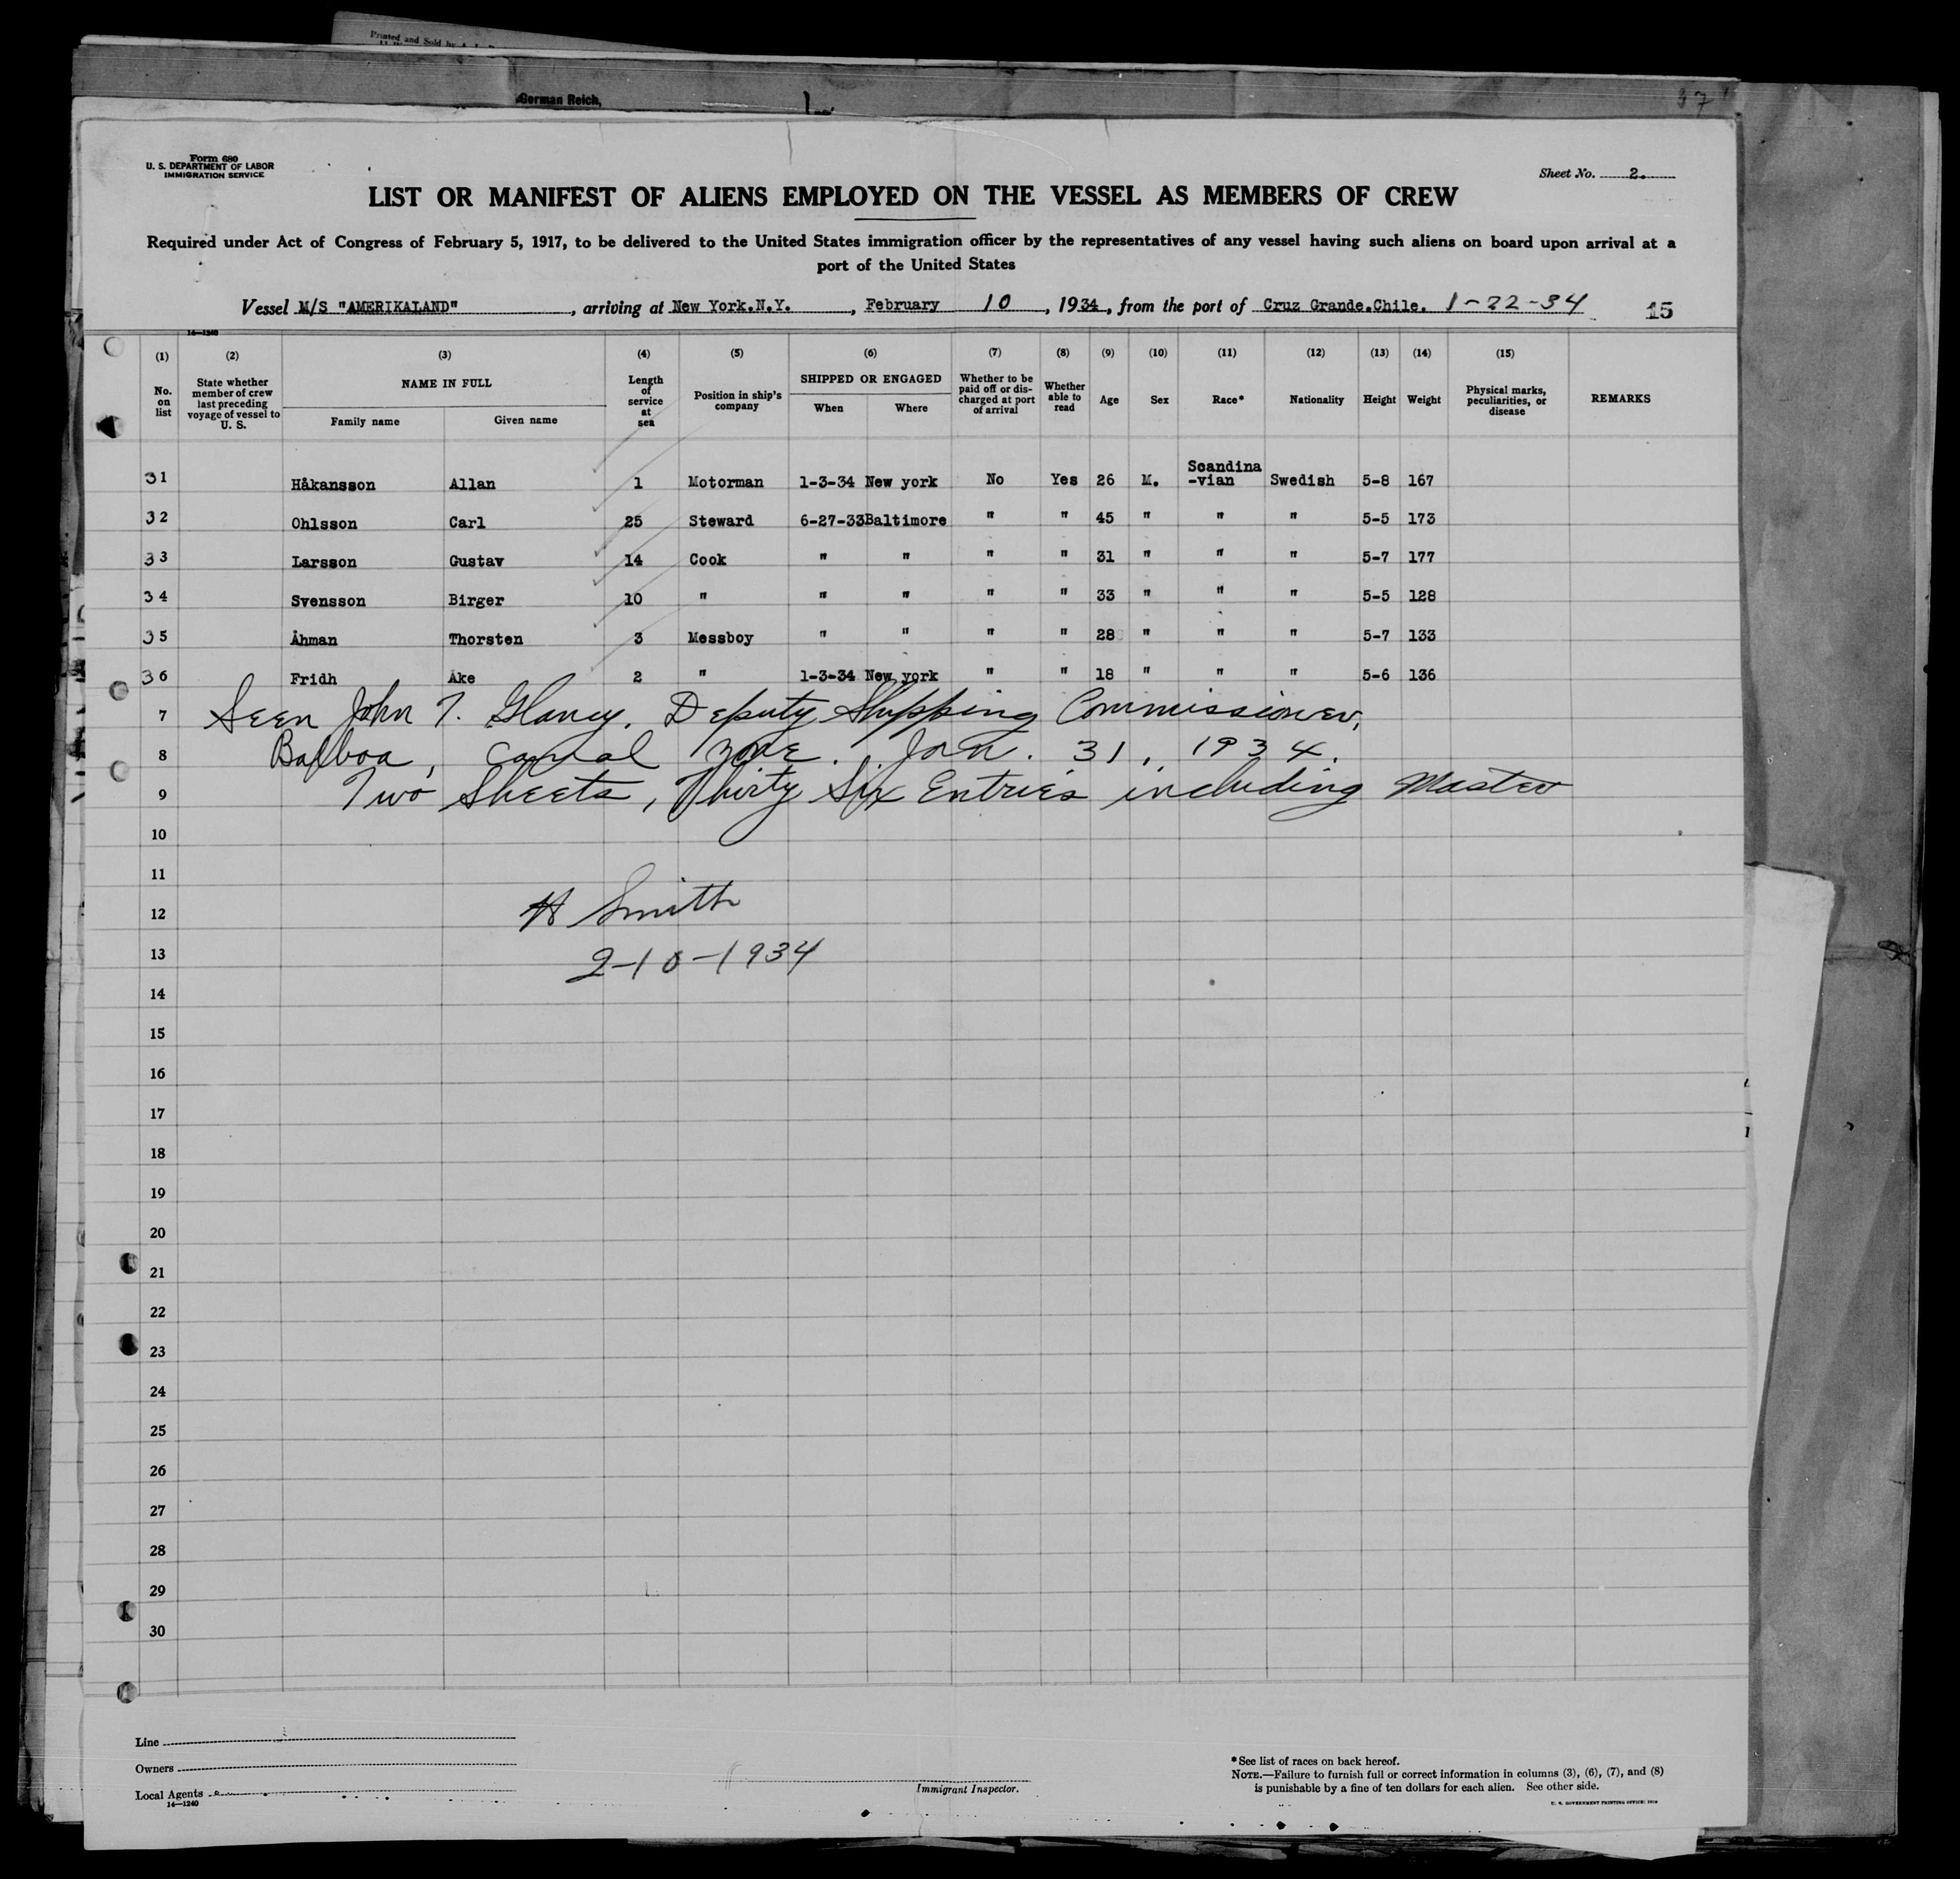 Printed and Sold by
German Reich,
37
Form 680
U. S. DEPARTMENT OF LABOR
IMMIGRATION SERVICE
Sheet No. 2.
LIST OR MANIFEST OF ALIENS EMPLOYED ON THE VESSEL AS MEMBERS OF CREW
Required under Act of Congress of February 5, 1917, to be delivered to the United States immigration officer by the representatives of any vessel having such aliens on board upon arrival at a
port of the United States
Vessel M/S "AMERIKALAND", arriving at New York.N.Y., February 10, 1934, from the port of Cruz Grande.Chile. 1-22-34 15
14—1240
(1) (2) (3) (4) (5) (6) (7) (8) (9) (10) (11) (12) (13) (14) (15)
No. on list State whether member of crew last preceding voyage of vessel to U. S. NAME IN FULL Length of service at sea Position in ship's company SHIPPED OR ENGAGED Whether to be paid off or discharged at port of arrival Whether able to read Age Sex Race* Nationality Height Weight Physical marks, peculiarities, or disease REMARKS
Family name Given name When Where
31 Håkansson Allan 1 Motorman 1-3-34 New york No Yes 26 M. Scandina-vian Swedish 5-8 167
32 Ohlsson Carl 25 Steward 6-27-33Baltimore " " 45 " " " 5-5 173
33 Larsson Gustav 14 Cook " " " " 31 " " " 5-7 177
34 Svensson Birger 10 " " " " " 33 " " " 5-5 128
35 Åhman Thorsten 3 Messboy " " " " 28 " " " 5-7 133
36 Fridh Åke 2 " 1-3-34 New york " " 18 " " " 5-6 136
7 Seen John T. Glancy, Deputy Shipping Commissioner,
8 Balboa, Canal Zone. Jan. 31, 1934.
9 Two Sheets, Thirty Six Entries including Master
10
11
12 H Smith
13 2-10-1934
14
15
16
17
18
19
20
21
22
23
24
25
26
27
28
29
30
Line
Owners
Local Agents
14—1240
Immigrant Inspector.
*See list of races on back hereof.
NOTE.—Failure to furnish full or correct information in columns (3), (6), (7), and (8)
is punishable by a fine of ten dollars for each alien. See other side.